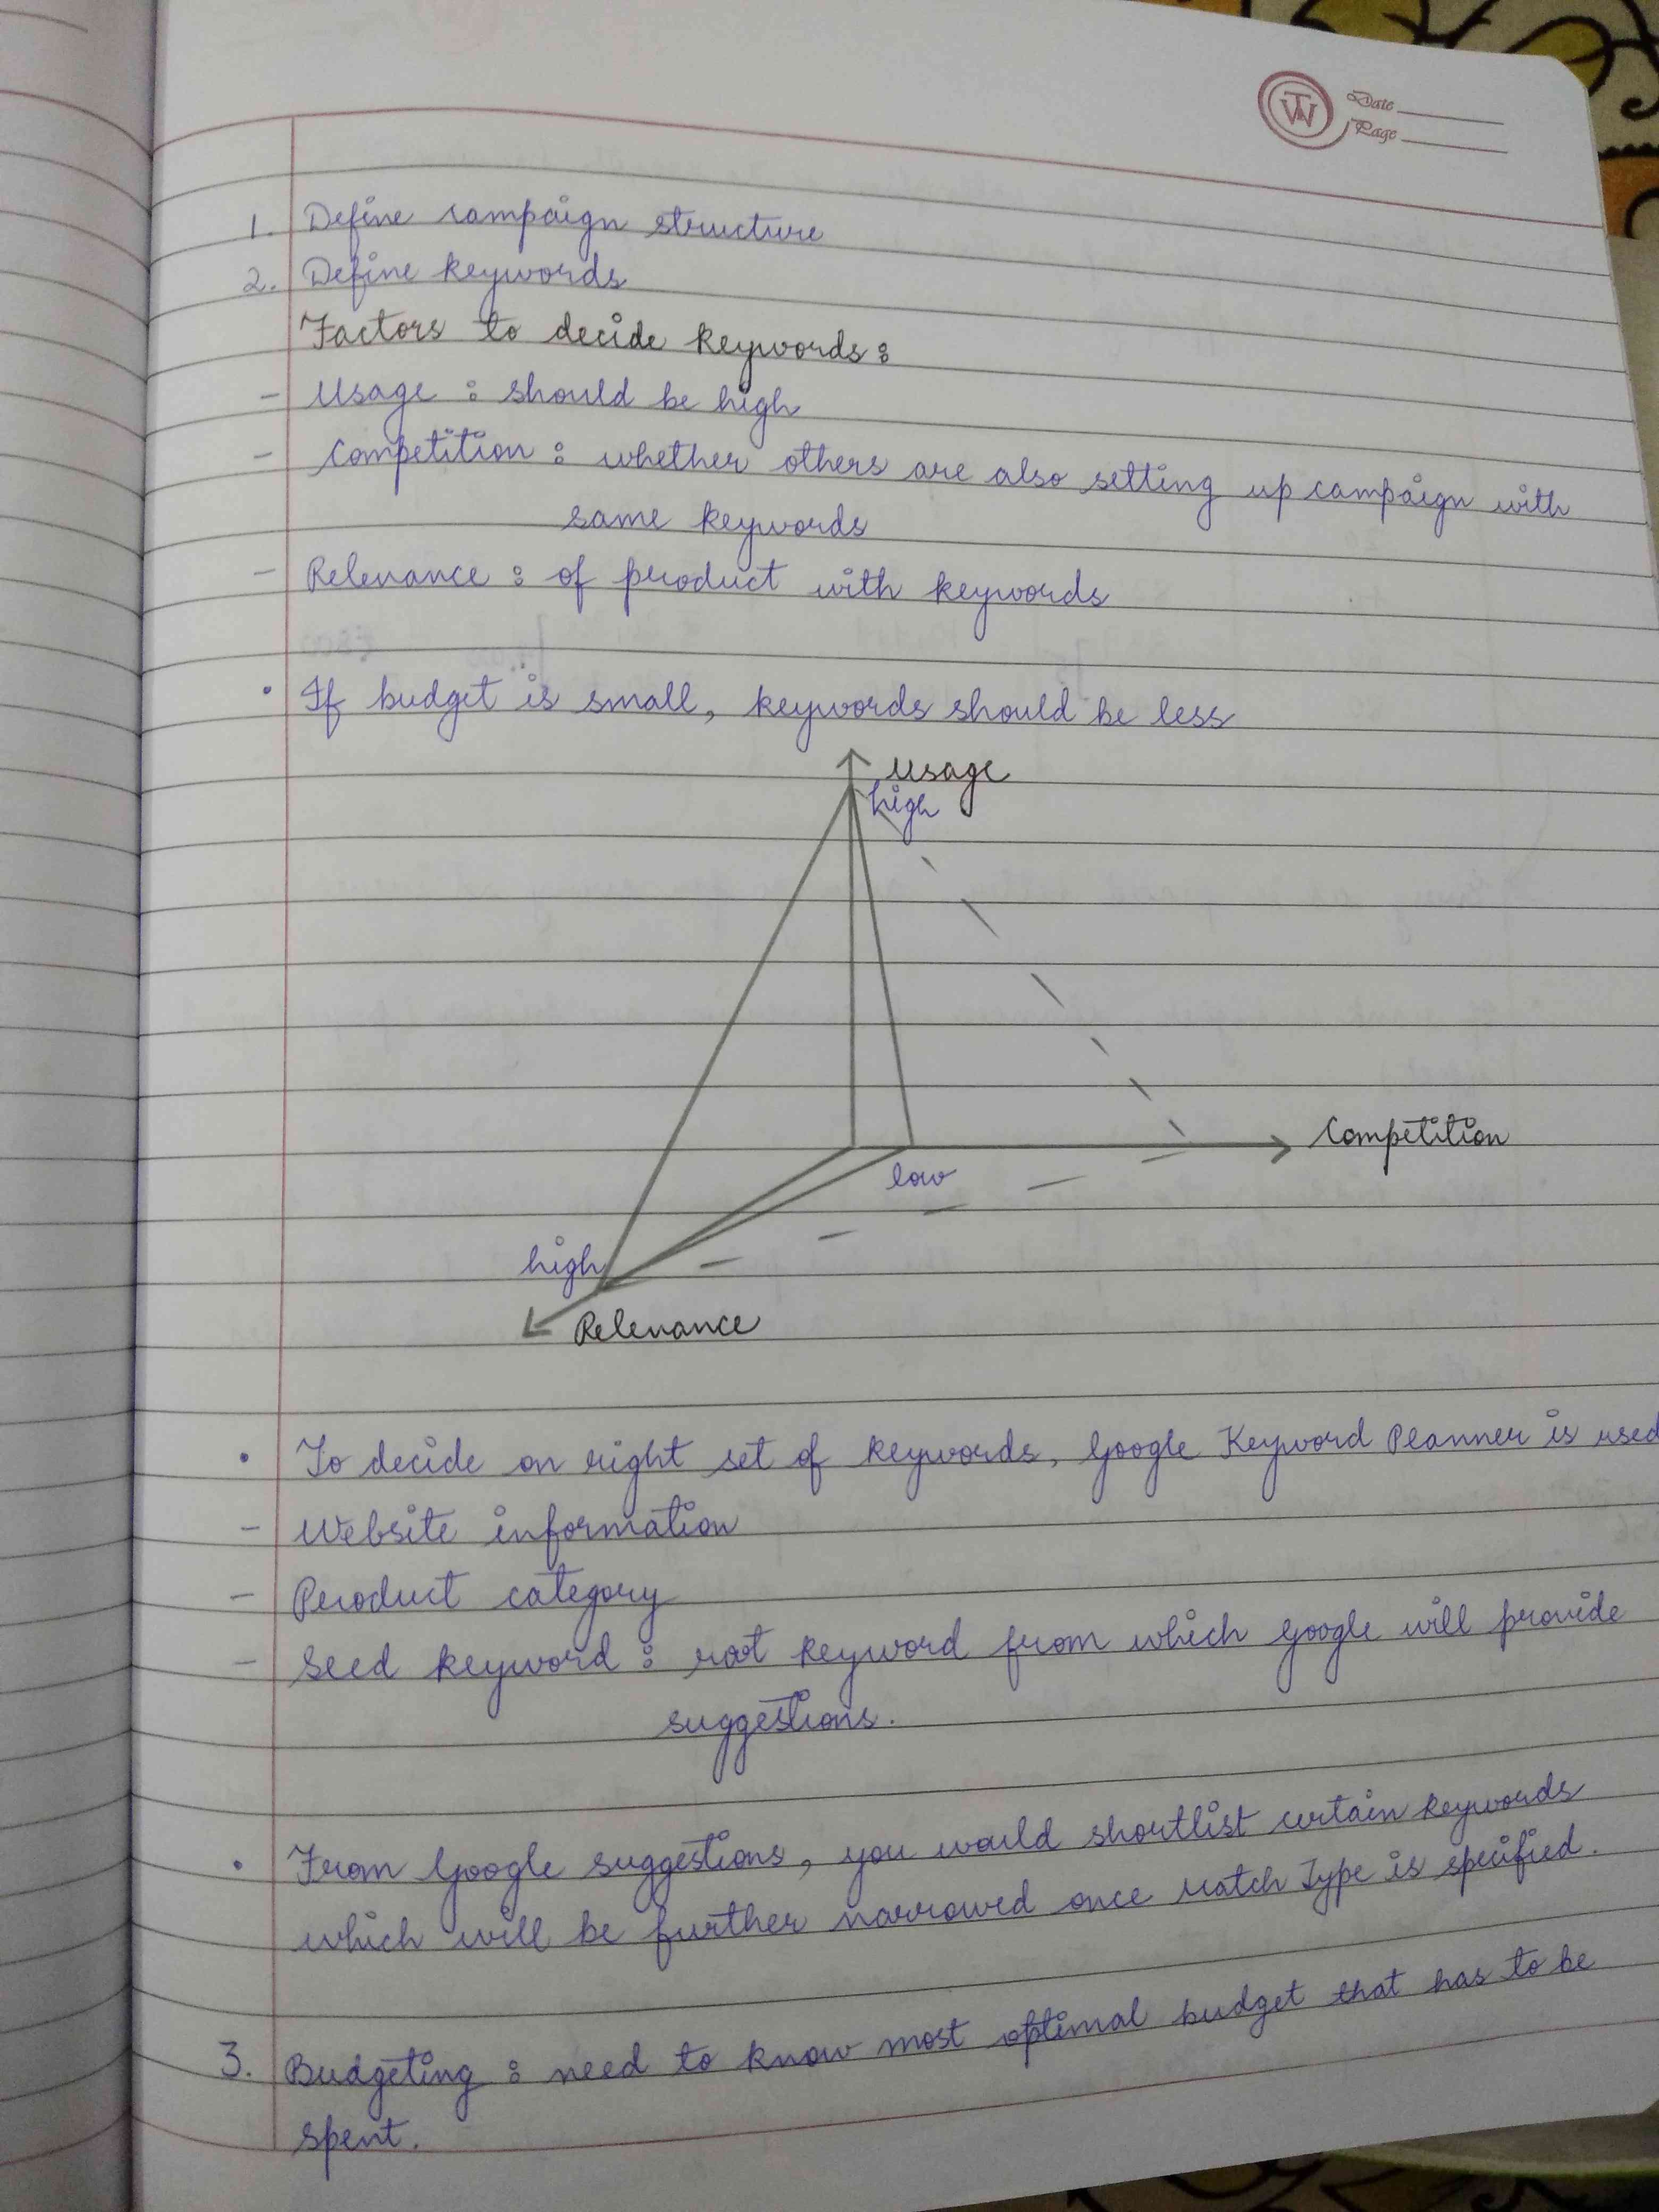 TW
Date
Page
1. Define campaign structure
2. Define keywords
Factors to decide keywords:
- Usage : should be high
- Competition : whether others are also setting up campaign with
same keywords
- Relevance : of product with keywords
• If budget is small, keywords should be less
Usage
high
Competition
low
high
Relevance
• To decide on right set of keywords, Google Keyword Planner is used
- Website information
- Product category
- Seed keyword : root keyword from which Google will provide
suggestions.
• From Google suggestions, you would shortlist certain keywords
which will be further narrowed once Match Type is specified.
3. Budgeting : need to know most optimal budget that has to be
spent.